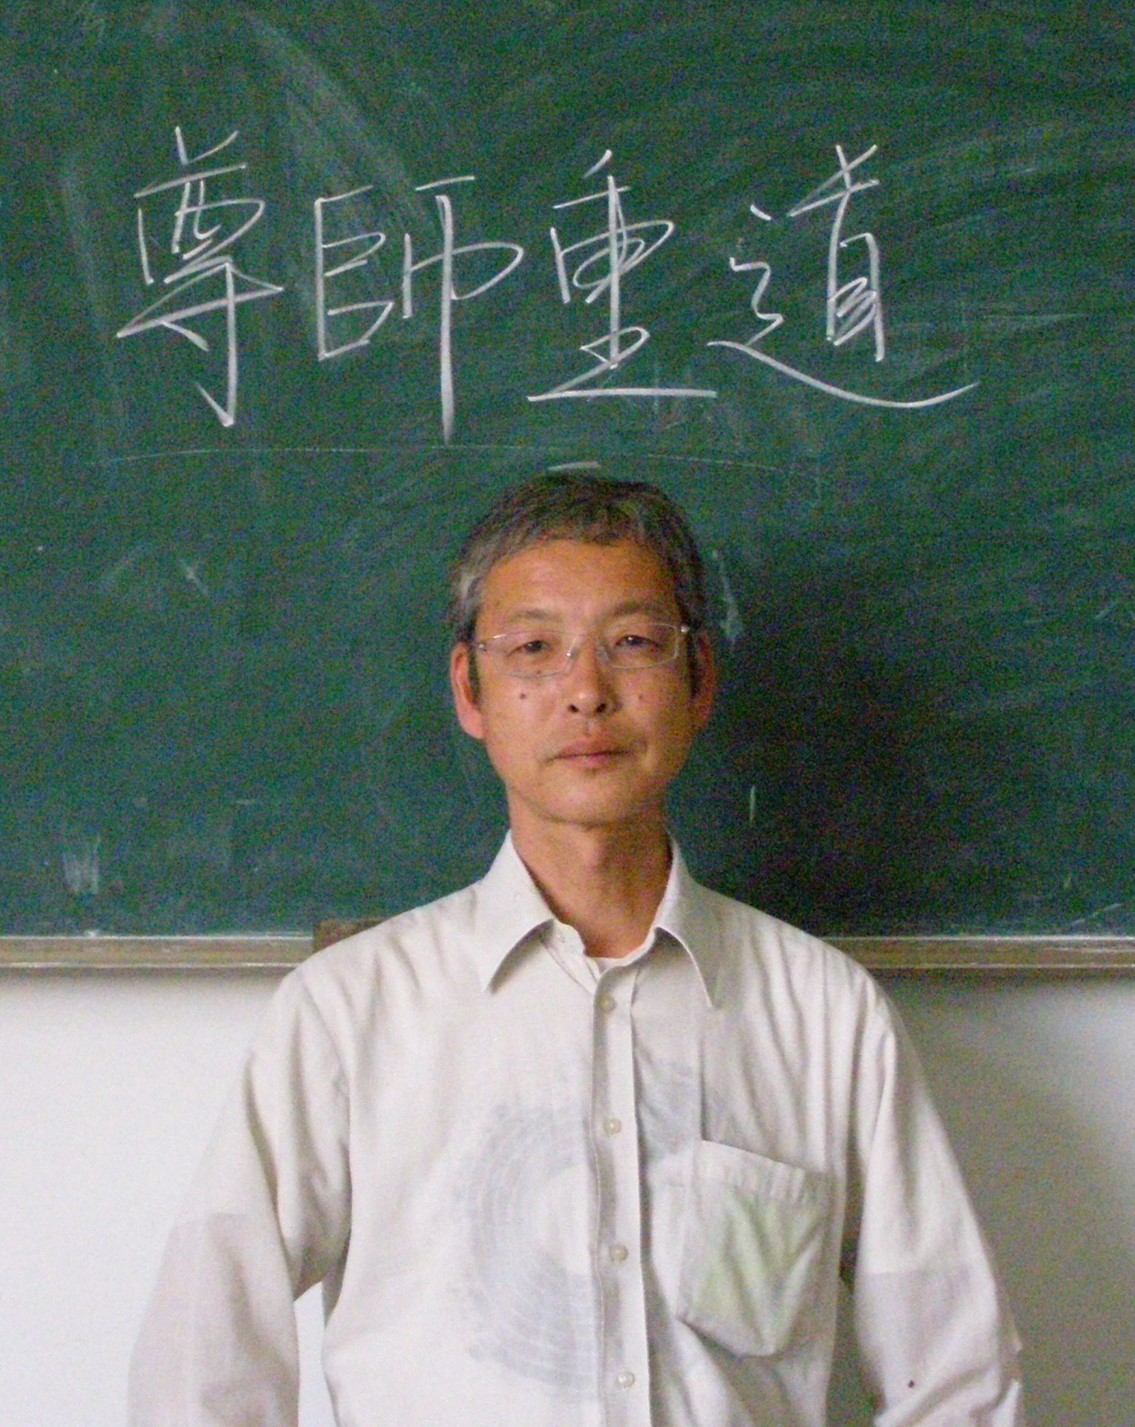 尊師重道